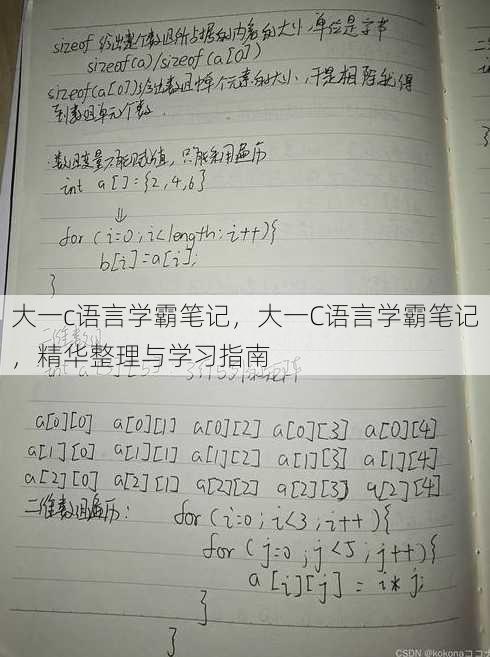 sizeof 给出整个数组所占据的内存的大小,单位是字节
sizeof(a)/sizeof(a[0])
sizeof(a[0])给出数组中单个元素的大小,于是相除就得
到数组单元个数.
数组变量不能赋值,只能采用遍历
int a[]={2,4,6}
↓
for(i=0;i<length;i++){
b[i]=a[i];
}
大一c语言学霸笔记,大一C语言学霸笔记
,精华整理与学习指南
a[0][0] a[0][1] a[0][2] a[0][3] a[0][4]
a[1][0] a[1][1] a[1][2] a[1][3] a[1][4]
a[2][0] a[2][1] a[2][2] a[2][3] a[2][4]
二维数组遍历: for(i=0;i<3;i++){
for(j=0;j<5;j++){
a[i][j]=i*j;
}
}
CSDN @kokonaココナ